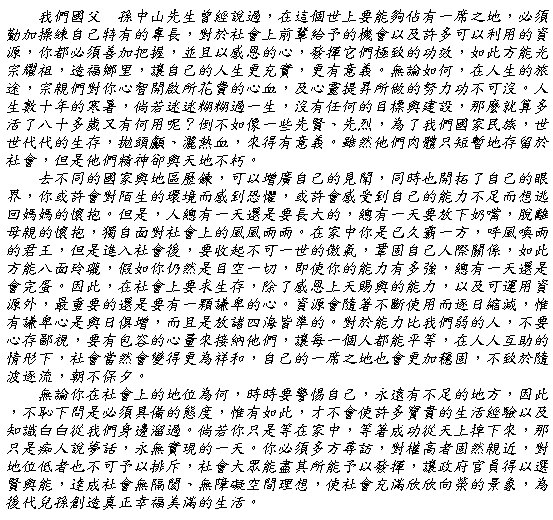 我們國父　孫中山先生曾經說過，在這個世上要能夠佔有一席之地，必須
勤加操練自己特有的專長，對於社會上前輩給予的機會以及許多可以利用的資
源，你都必須善加把握，並且以感恩的心，發揮它們極致的功效，如此方能光
宗耀祖，造福鄉里，讓自己的人生更充實，更有意義。無論如何，在人生的旅
途，宗親們對你心智開啟所花費的心血，及心靈提昇所做的努力功不可沒。人
生數十年的寒暑，倘若迷迷糊糊過一生，沒有任何的目標與建設，那麼就算多
活了八十多歲又有何用呢？倒不如像一些先賢、先烈，為了我們國家民族，世
世代代的生存，拋頭顱、灑熱血，來得有意義。雖然他們肉體只短暫地存留於
社會，但是他們精神卻與天地不朽。
去不同的國家與地區歷鍊，可以增廣自己的見聞，同時也開拓了自己的眼
界，你或許會對陌生的環境而感到恐懼，或許會感受到自己的能力不足而想逃
回媽媽的懷抱。但是，人總有一天還是要長大的，總有一天要放下奶嘴，脫離
母親的懷抱，獨自面對社會上的風風雨雨。在家中你是己久霸一方，呼風喚雨
的君王，但是進入社會後，要收起不可一世的傲氣，鞏固自己人際關係，如此
方能八面玲瓏，假如你仍然是目空一切，即使你的能力有多強，總有一天還是
會完蛋。因此，在社會上要求生存，除了感恩上天賜與的能力，以及可運用資
源外，最重要的還是要有一顆謙卑的心。資源會隨著不斷使用而逐日縮減，惟
有謙卑心是與日俱增，而且是放諸四海皆準的。對於能力比我們弱的人，不要
心存鄙視，要有包容的心量來接納他們，讓每一個人都能平等，在人人互助的
情形下，社會當然會變得更為祥和，自己的一席之地也會更加穩固，不致於隨
波逐流，朝不保夕。
無論你在社會上的地位為何，時時要警惕自己，永遠有不足的地方，因此
，不恥下問是必須具備的態度，惟有如此，才不會使許多寶貴的生活經驗以及
知識白白從我們身邊溜過。倘若你只是等在家中，等著成功從天上掉下來，那
只是痴人說夢話，永無實現的一天。你必須多方尋訪，對權高者固然親近，對
地位低者也不可予以排斥，社會大眾能盡其所能予以發揮，讓政府官員得以選
賢與能，達成社會無隔閡、無障礙空間理想，使社會充滿欣欣向榮的景象，為
後代兒孫創造真正幸福美滿的生活。